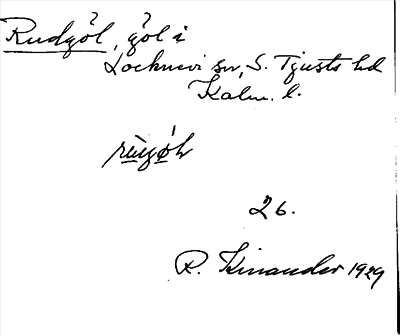 Rudgöl, göl i
Locknevi sn, S. Tjusts hd
Kalm. l.
26.
R. Kinander 1929